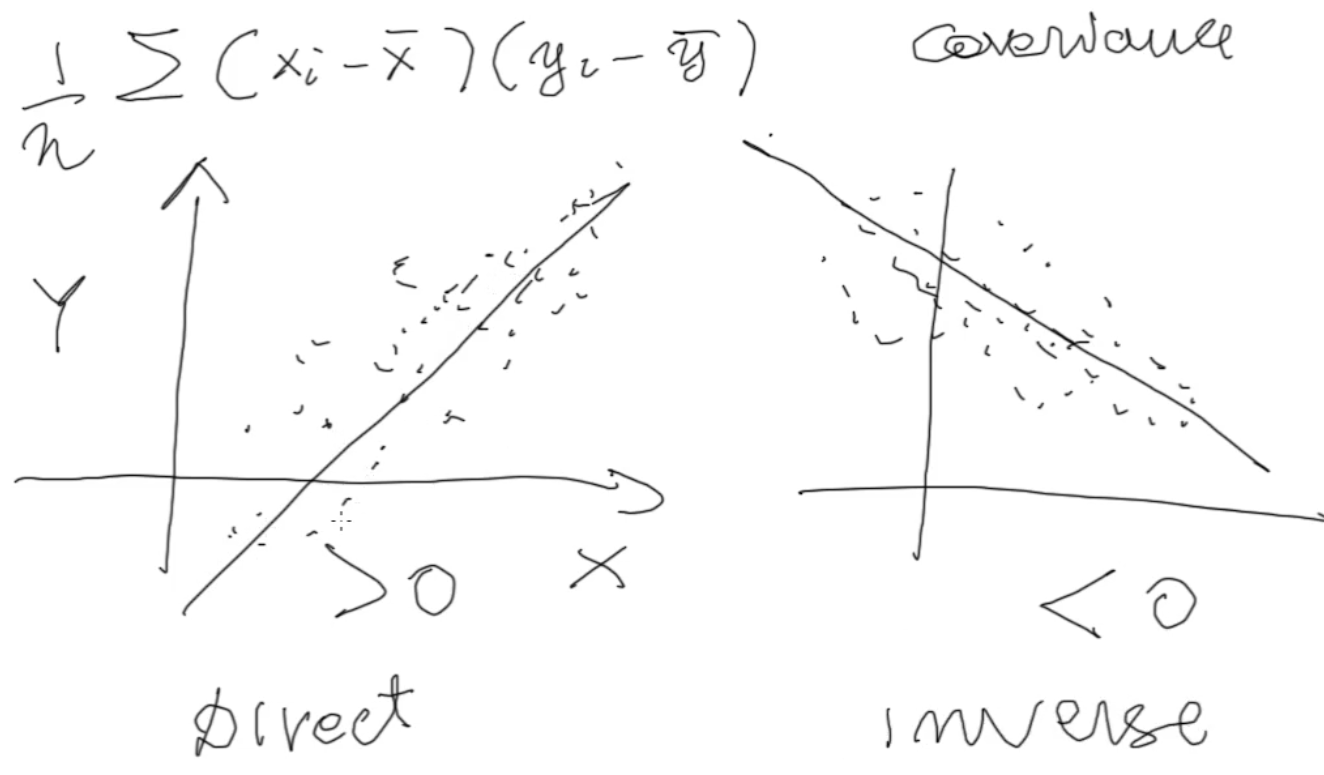 1/n ∑ (xi - x̄)(yi - ȳ) covariance
Y
X
> 0 < 0
Direct inverse